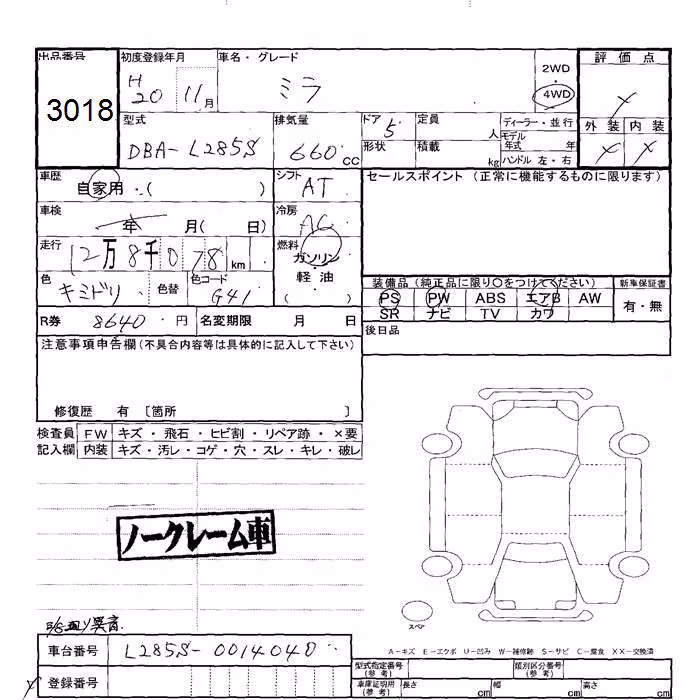 出品番号 初度登録年月 車名・グレード 2WD 評価点
3018 H20 11月 ミラ 4WD ×
型式 排気量 ドア 定員 ディーラー・並行 外装 内装
DBA-L285S 660cc 5 人 モデル年式 年 × ×
形状 積載 kg ハンドル 左・右
車歴 自家用・( ) シフト AT セールスポイント (正常に機能するものに限ります)
車検 年 月( 日) 冷房 AC
走行 12万8千078km 燃料 ガソリン・軽油 ( )
色 キミドリ 色替 色コード G41
装備品 (純正品に限り○をつけてください) 新車保証書
PS PW ABS エアB AW 有・無
SR ナビ TV カワ
R券 8640円 名変期限 月 日 後日品
注意事項申告欄(不具合内容等は具体的に記入して下さい)
修復歴 有 [箇所 ]
検査員 FW キズ・飛石・ヒビ割・リペア跡・×要
記入欄 内装 キズ・汚レ・コゲ・穴・スレ・キレ・破レ
ノークレーム車
異音
スペア
A-キズ E-エクボ U-凹み W-補修跡 S-サビ C-腐食 XX-交換済
車台番号 L285S-0014040
登録番号
型式指定番号(参考) 類別区分番号(参考)
車庫証明用(参考) 長さ cm 幅 cm 高さ cm